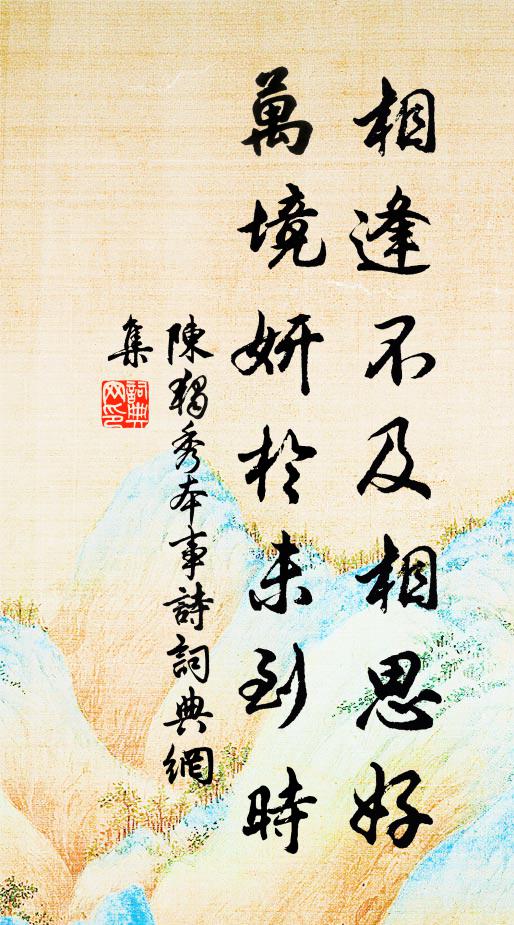 相逢不及相思好
萬境妍於未到時
陳獨秀本事詩詞典網
集
詞典
网印